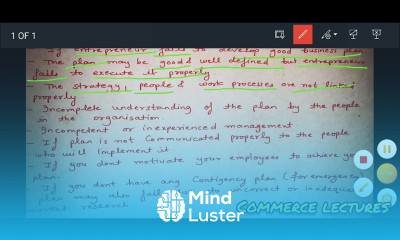 1 OF 1
- If entrepreneur fails to develop good business plan
- The plan may be good & well defined but entrepreneur
fails to execute it properly
- The strategy, people & work processes are not linked
properly
- Incomplete understanding of the plan by the people
in the organisation.
- Incompetent or inexperienced management
- If plan is not communicated properly to the people
who will implement it
- If you dont motivate your employees to achieve
plan.
- If you dont have any Contigency plan (for emergency)
plan may also fail to incorrect or inadequate
market research
Mind
Luster
COMMERCE LECTURES